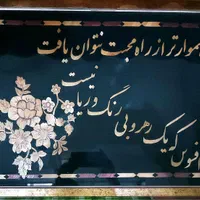 هموارتر از راه محبت نتوان یافت
افسوس که یک رهرو بی رنگ و ریا نیست